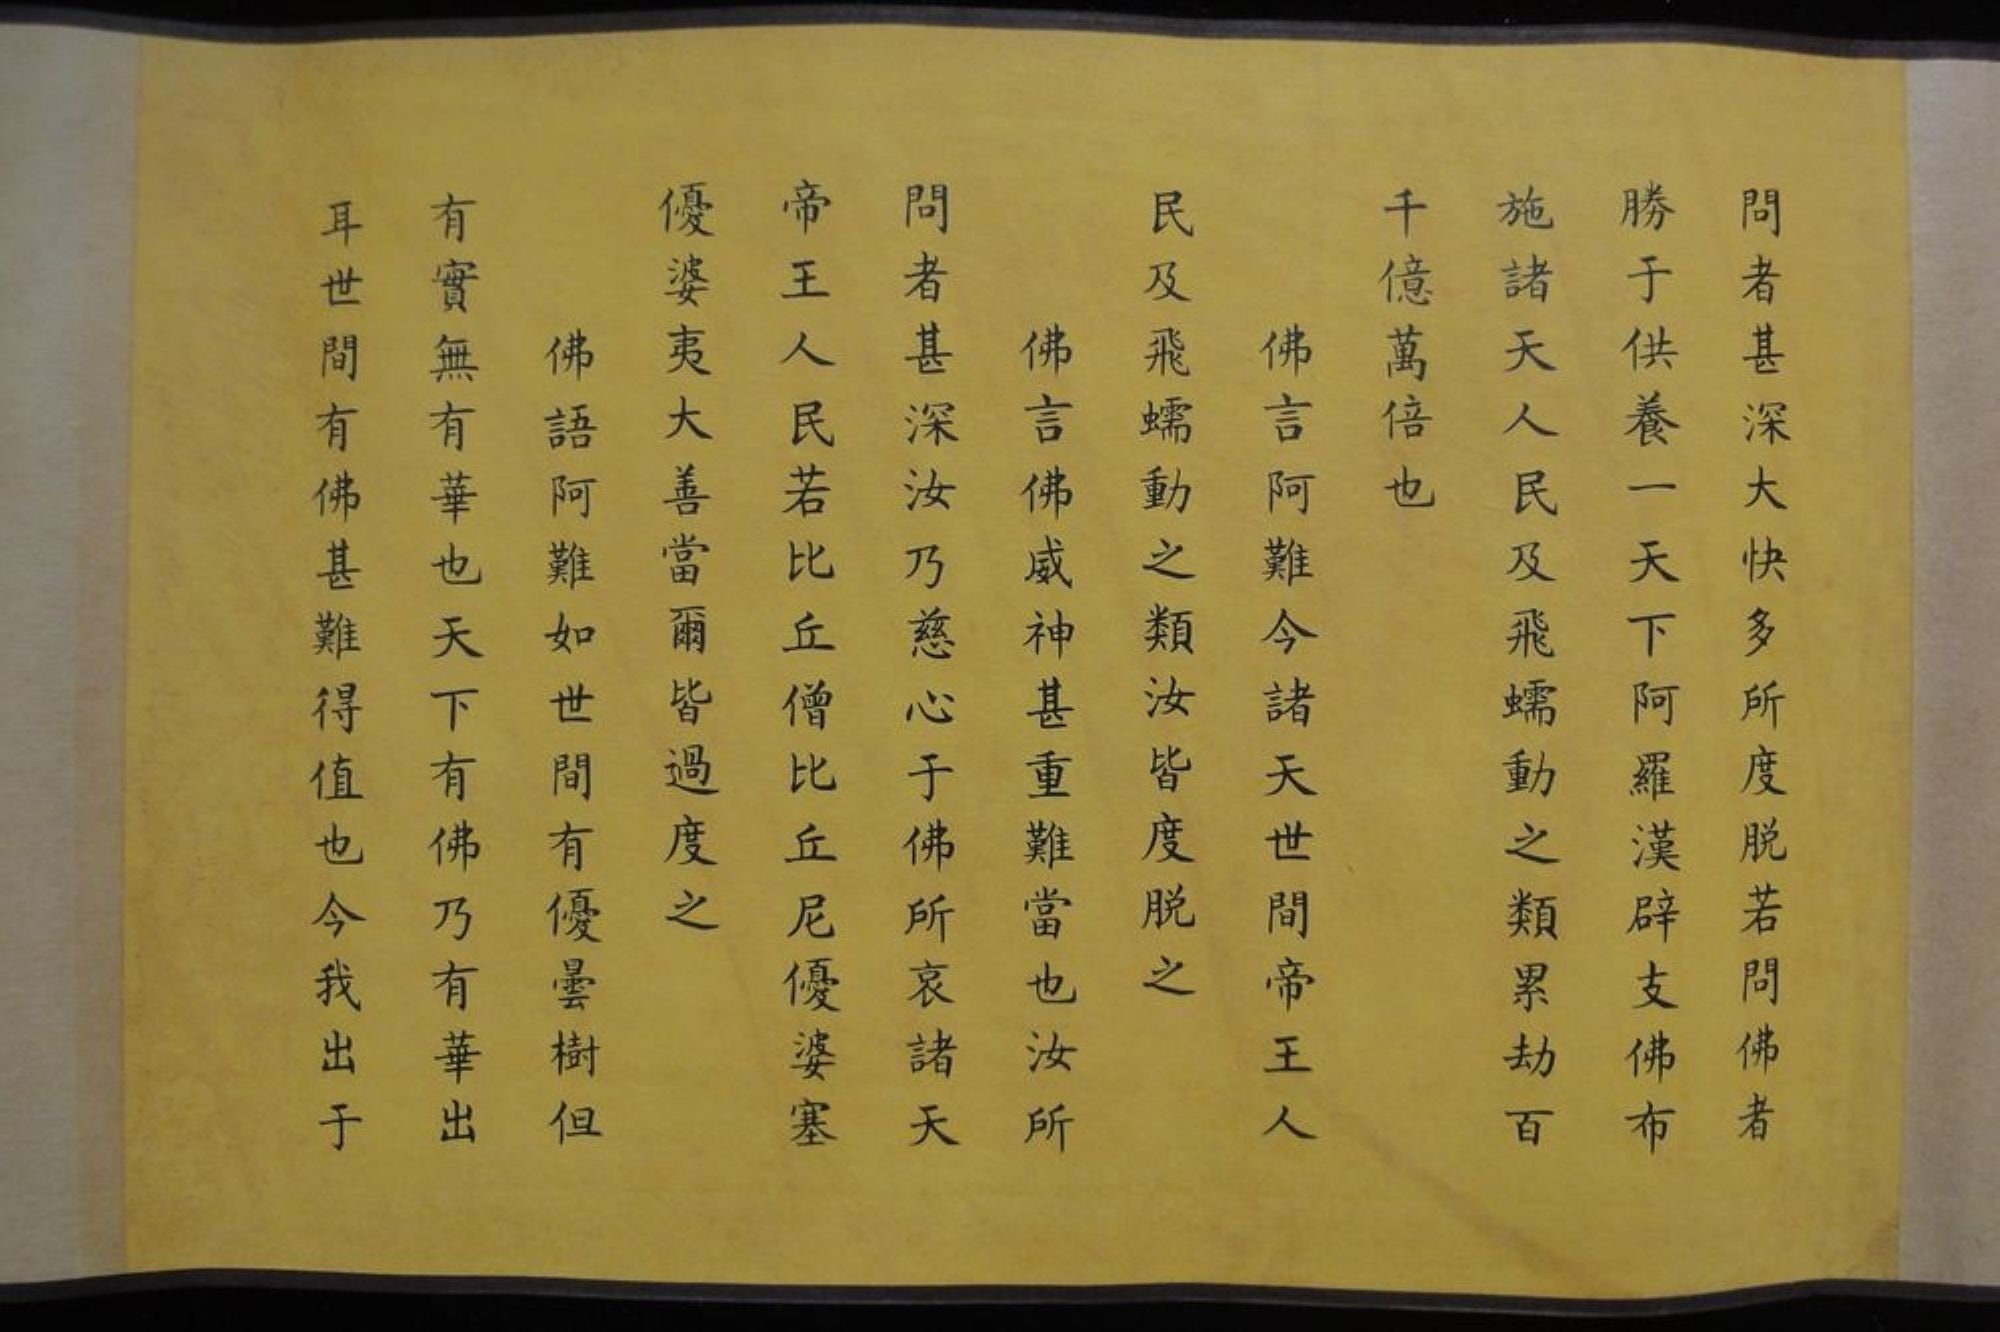 問者甚深大快多所度脱若問佛者
勝于供養一天下阿羅漢辟支佛布
施諸天人民及飛蠕動之類累劫百
千億萬倍也
佛言阿難今諸天世間帝王人
民及飛蠕動之類汝皆度脱之
佛言佛威神甚重難當也汝所
問者甚深汝乃慈心于佛所哀諸天
帝王人民若比丘僧比丘尼優婆塞
優婆夷大善當爾皆過度之
佛語阿難如世間有優曇樹但
有實無有華也天下有佛乃有華出
耳世間有佛甚難得值也今我出于